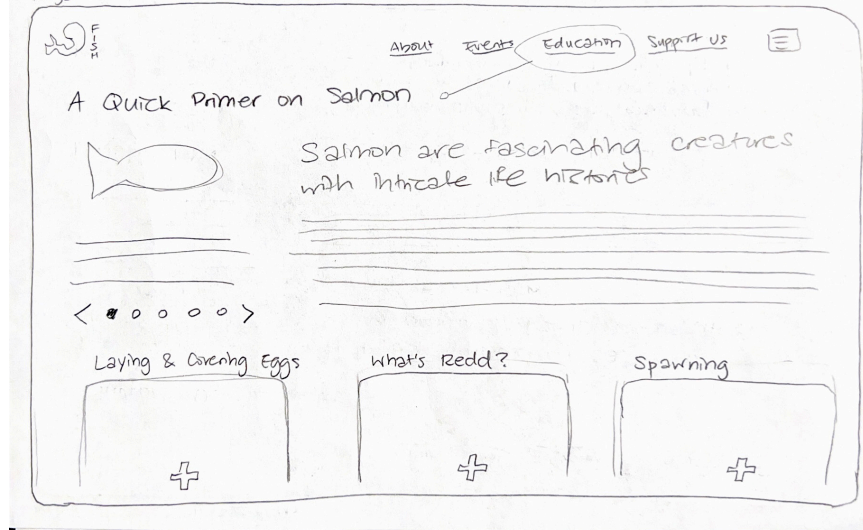 FISH
About Events Education Support Us
A Quick Primer on Salmon
Salmon are fascinating creatures
with intricate life histories
Laying & Covering Eggs What's Redd? Spawning